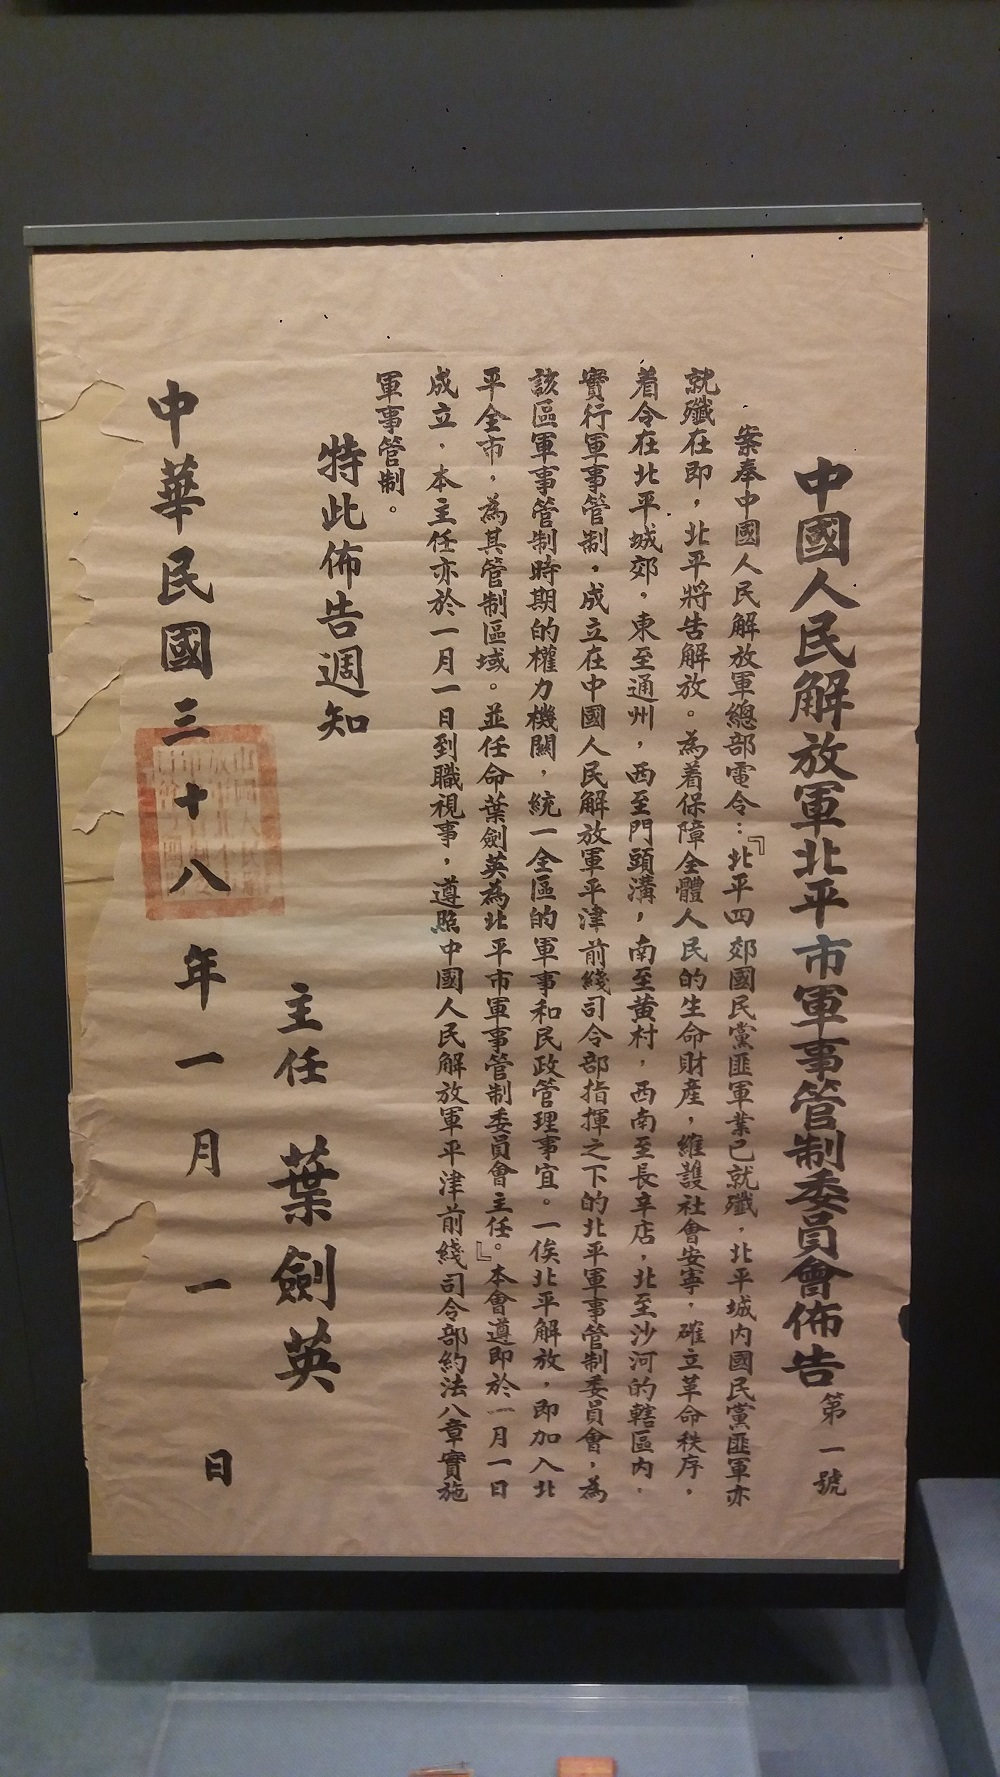 中國人民解放軍北平市軍事管制委員會佈告 第一號
案奉中國人民解放軍總部電令：『北平四郊國民黨匪軍業已就殲，北平城内國民黨匪軍亦
就殲在即，北平將告解放。為着保障全體人民的生命財產，維護社會安寧，確立革命秩序，
着令在北平城郊，東至通州，西至門頭溝，南至黄村，西南至長辛店，北至沙河的轄區内，
實行軍事管制，成立在中國人民解放軍平津前綫司令部指揮之下的北平軍事管制委員會，為
該區軍事管制時期的權力機關，統一全區的軍事和民政管理事宜。一俟北平解放，即加入北
平全市，為其管制區域。並任命葉劍英為北平市軍事管制委員會主任。』本會遵即於一月一日
成立，本主任亦於一月一日到職視事，遵照中國人民解放軍平津前綫司令部約法八章實施
軍事管制。
特此佈告週知
主任 葉劍英
中華民國三十八年一月一日